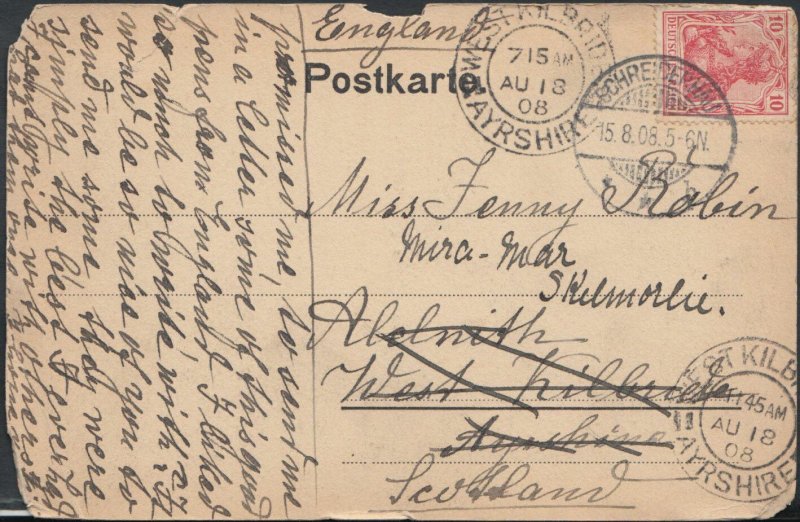 England
Postkarte
WEST KILBRIDE
7 15 AM
AU 18
08
AYRSHIRE
SCHREIBERHAU
15.8.08.5-6N.
b
10 10
DEUTSCHES
Miss Jenny Robin
Mira-Mar
Skelmorlie.
West Kilbride
Ayrshire
Scotland
WEST KILB
11 45 AM
AU 18
08
AYRSHIRE
promised me, to send me
in a letter some of this
pens from England I liked
so much to write with. It
would be so nice of you to
send me some they were
simply the best I ever had
I can't write with others.